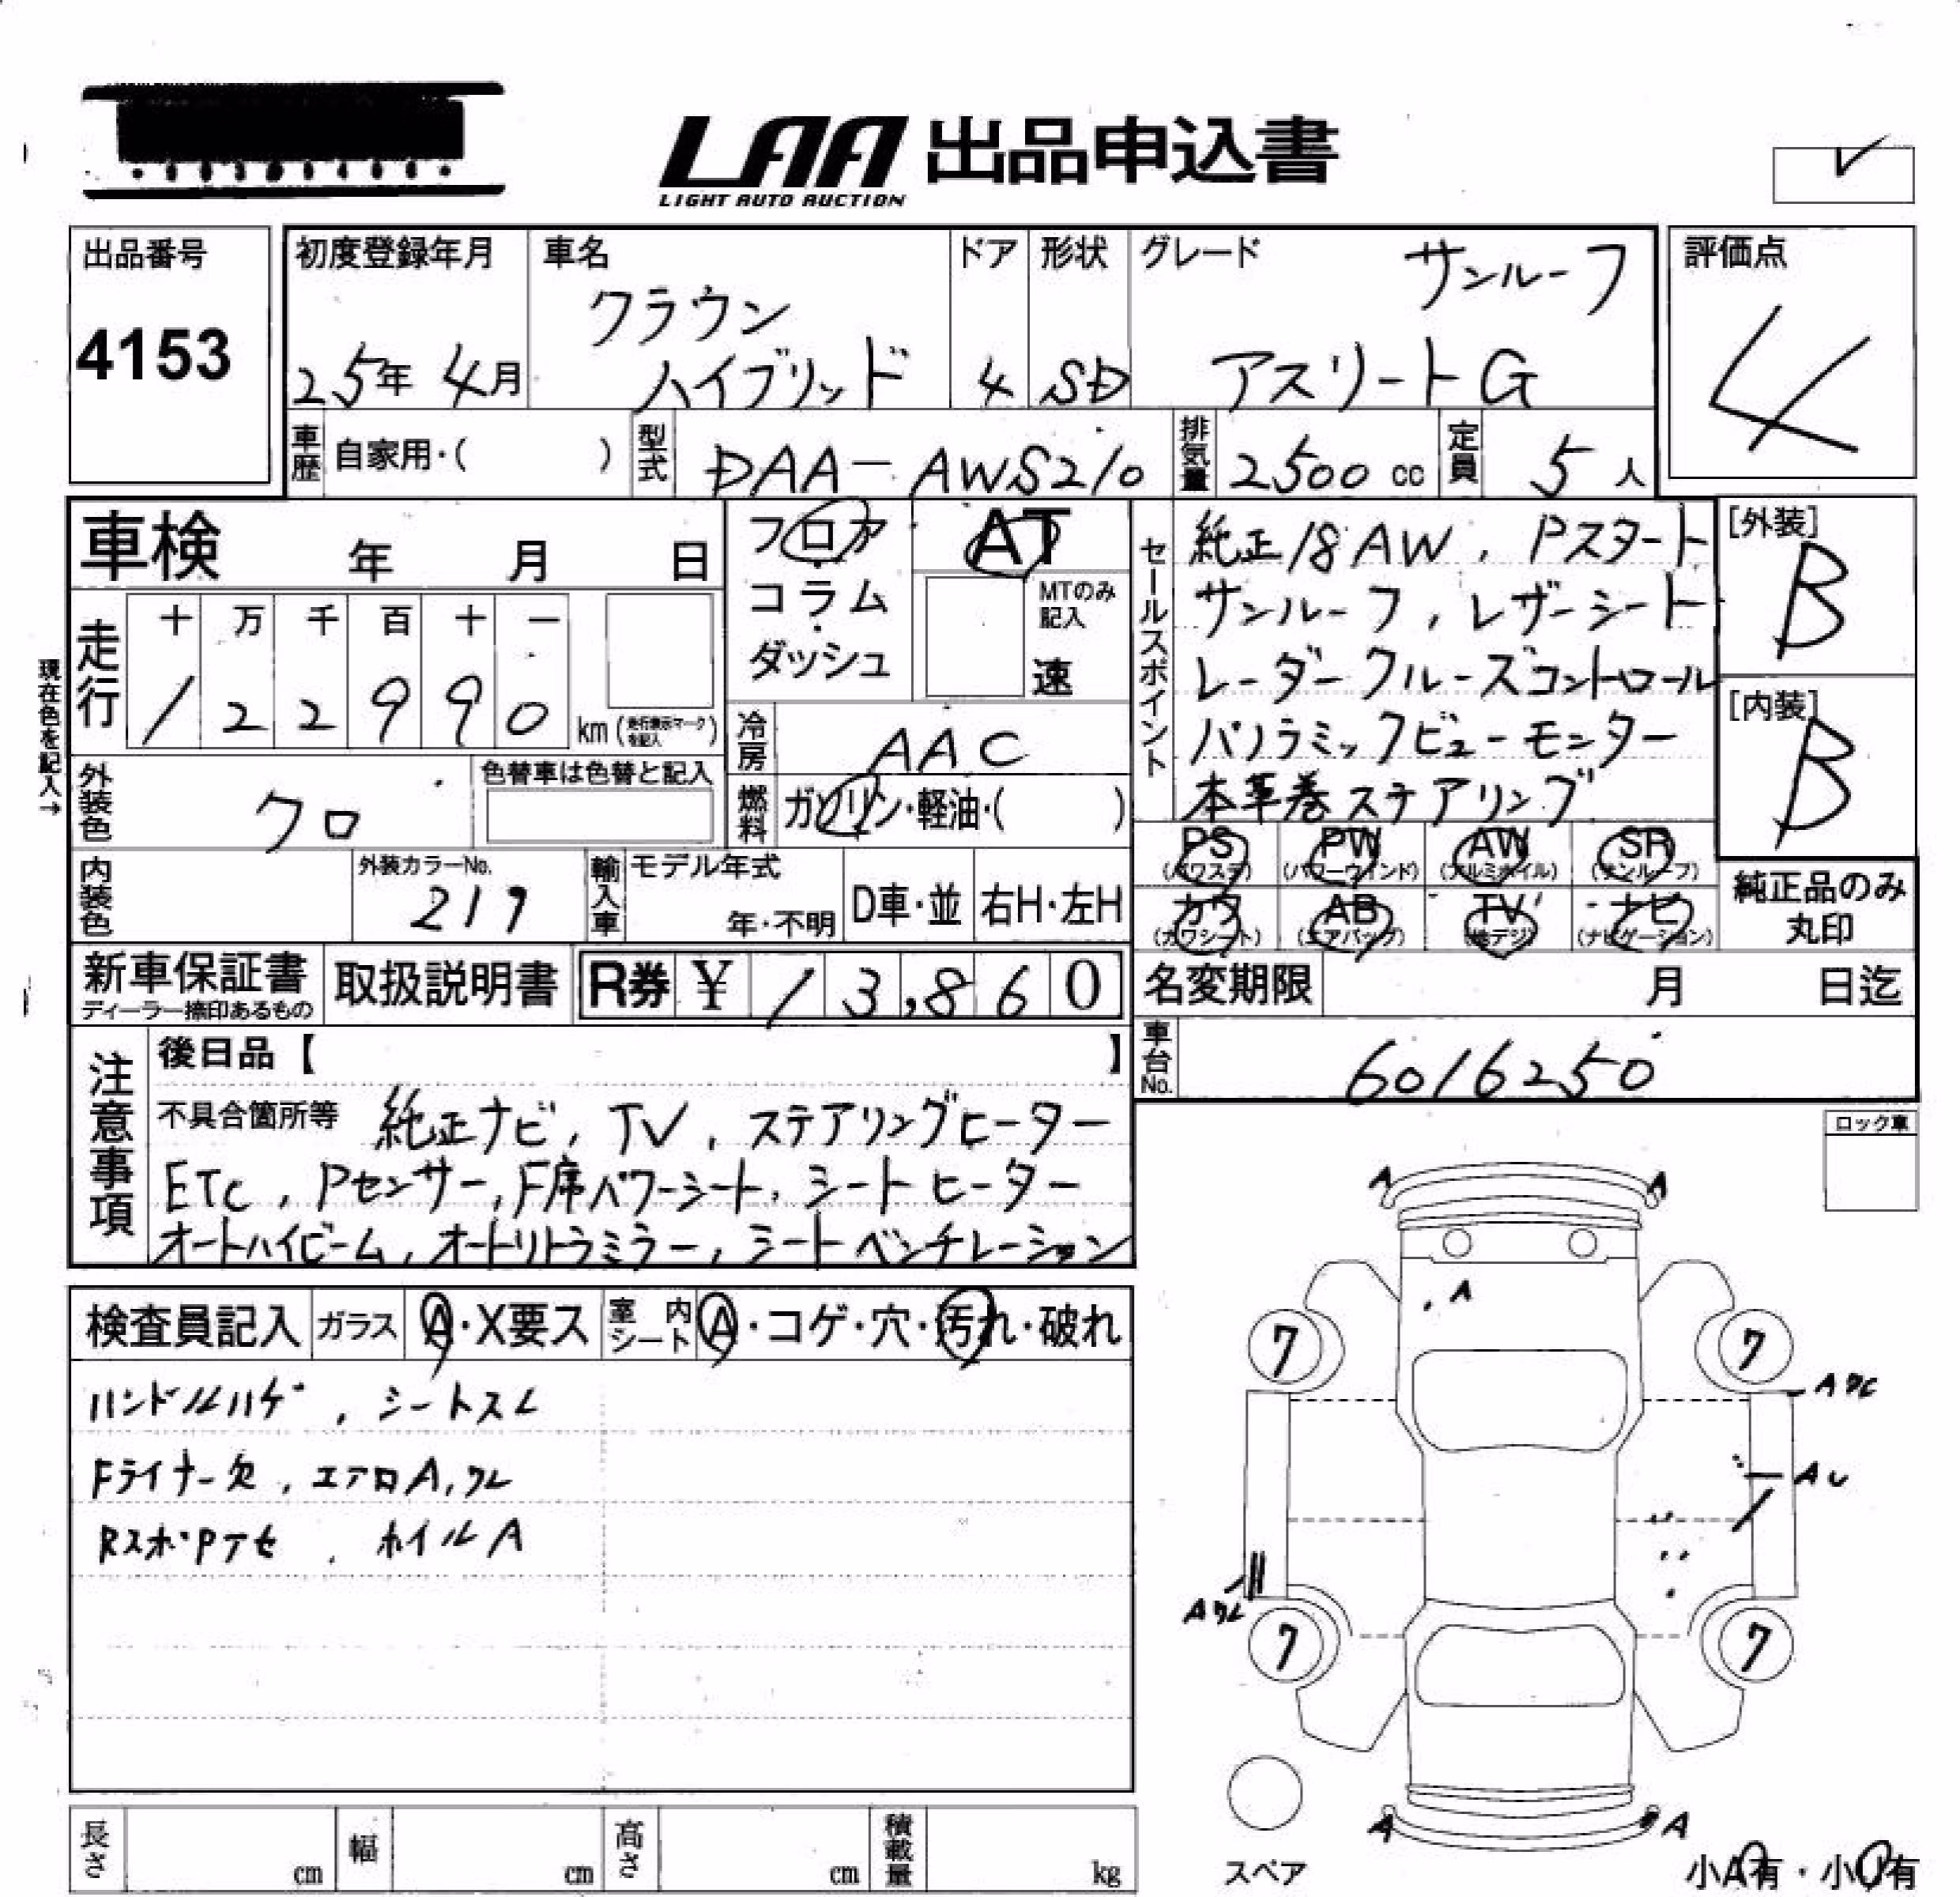 LAA 出品申込書
LIGHT AUTO AUCTION
出品番号
4153
初度登録年月
25年 4月
車名
クラウン
ハイブリッド
ドア
4
形状
SD
グレード
サンルーフ
アスリートG
評価点
4
車歴 自家用・( )
型式 DAA-AWS210
排気量 2500 cc
定員 5人
車検 年 月 日
フロア
コラム
ダッシュ
AT
MTのみ記入
速
セールスポイント
純正18AW, Pスタート
サンルーフ, レザーシート
レーダークルーズコントロール
パノラミックビューモニター
本革巻ステアリング
[外装]
B
[内装]
B
現在色を記入→
走行
十 万 千 百 十 一
1 2 2 9 9 0 km (走行表示マークを記入)
冷房 AAC
外装色 クロ
色替車は色替と記入
燃料 ガソリン・軽油・( )
PS (パワステ) PW (パワーウインド) AW (アルミホイル) SR (サンルーフ)
カワ (カワシート) AB (エアバッグ) TV (地デジ) ナビ (ナビゲーション)
純正品のみ
丸印
内装色
外装カラーNo.
219
輸入車
モデル年式
年・不明
D車・並 右H・左H
新車保証書
ディーラー捺印あるもの
取扱説明書
R券 ¥ 13,860
名変期限 月 日迄
車台No. 6016250
注意事項
後日品【 】
不具合箇所等 純正ナビ, TV, ステアリングヒーター
ETC, Pセンサー, F席パワーシート, シートヒーター
オートハイビーム, オートリトラミラー, シートベンチレーション
ロック車
検査員記入 ガラス A・X要ス 室内シート A・コゲ・穴・汚れ・破れ
ハンドルハゲ, シートスレ
Fライナー欠, エアロA, ワレ
RスポPTセ, ホイルA
A A
A
7 7
AワレC
AU
Aワレ
7 7
A A
スペア
小A有・小U有
長さ cm 幅 cm 高さ cm 積載量 kg